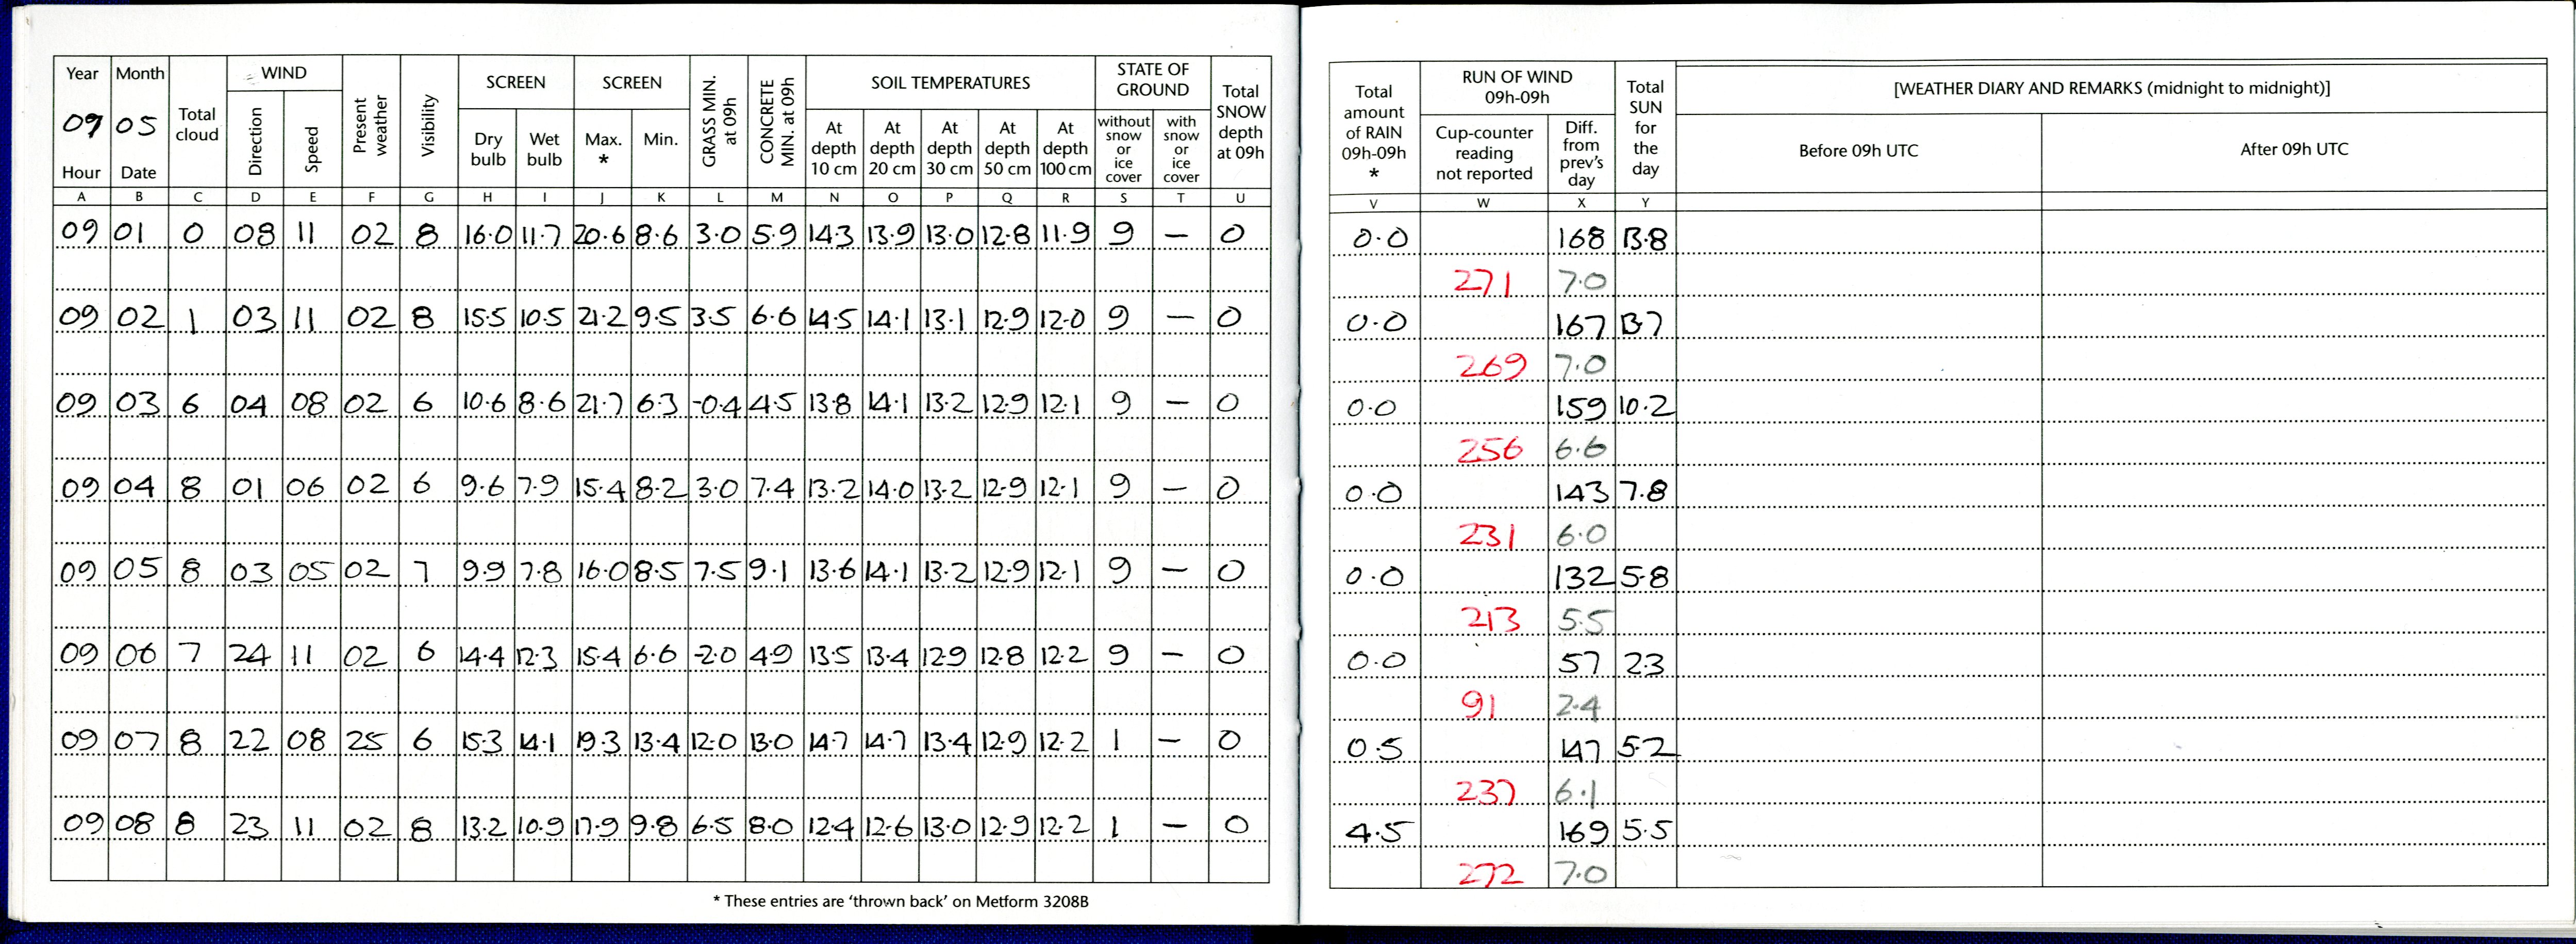 Year Month Total cloud WIND Present weather Visibility SCREEN SCREEN GRASS MIN. at 09h CONCRETE MIN. at 09h SOIL TEMPERATURES STATE OF GROUND Total SNOW depth at 09h
09 05 Direction Speed Dry bulb Wet bulb Max. * Min. At depth 10 cm At depth 20 cm At depth 30 cm At depth 50 cm At depth 100 cm without snow or ice cover with snow or ice cover
Hour Date
A B C D E F G H I J K L M N O P Q R S T U
09 01 0 08 11 02 8 16.0 11.7 20.6 8.6 3.0 5.9 14.3 13.9 13.0 12.8 11.9 9 – 0
09 02 1 03 11 02 8 15.5 10.5 21.2 9.5 3.5 6.6 14.5 14.1 13.1 12.9 12.0 9 – 0
09 03 6 04 08 02 6 10.6 8.6 21.7 6.3 -0.4 4.5 13.8 14.1 13.2 12.9 12.1 9 – 0
09 04 8 01 06 02 6 9.6 7.9 15.4 8.2 3.0 7.4 13.2 14.0 13.2 12.9 12.1 9 – 0
09 05 8 03 05 02 7 9.9 7.8 16.0 8.5 7.5 9.1 13.6 14.1 13.2 12.9 12.1 9 – 0
09 06 7 24 11 02 6 14.4 12.3 15.4 6.6 -2.0 4.9 13.5 13.4 12.9 12.8 12.2 9 – 0
09 07 8 22 08 25 6 15.3 14.1 19.3 13.4 12.0 13.0 14.7 14.7 13.4 12.9 12.2 1 – 0
09 08 8 23 11 02 8 13.2 10.9 17.9 9.8 6.5 8.0 12.4 12.6 13.0 12.9 12.2 1 – 0
* These entries are ‘thrown back’ on Metform 3208B
Total amount of RAIN 09h-09h * RUN OF WIND 09h-09h Total SUN for the day [WEATHER DIARY AND REMARKS (midnight to midnight)]
Cup-counter reading not reported Diff. from prev’s day Before 09h UTC After 09h UTC
V W X Y
0.0 168 13.8
271 7.0
0.0 167 13.7
269 7.0
0.0 159 10.2
256 6.6
0.0 143 7.8
231 6.0
0.0 132 5.8
213 5.5
0.0 57 2.3
91 2.4
0.5 147 5.2
237 6.1
4.5 169 5.5
272 7.0